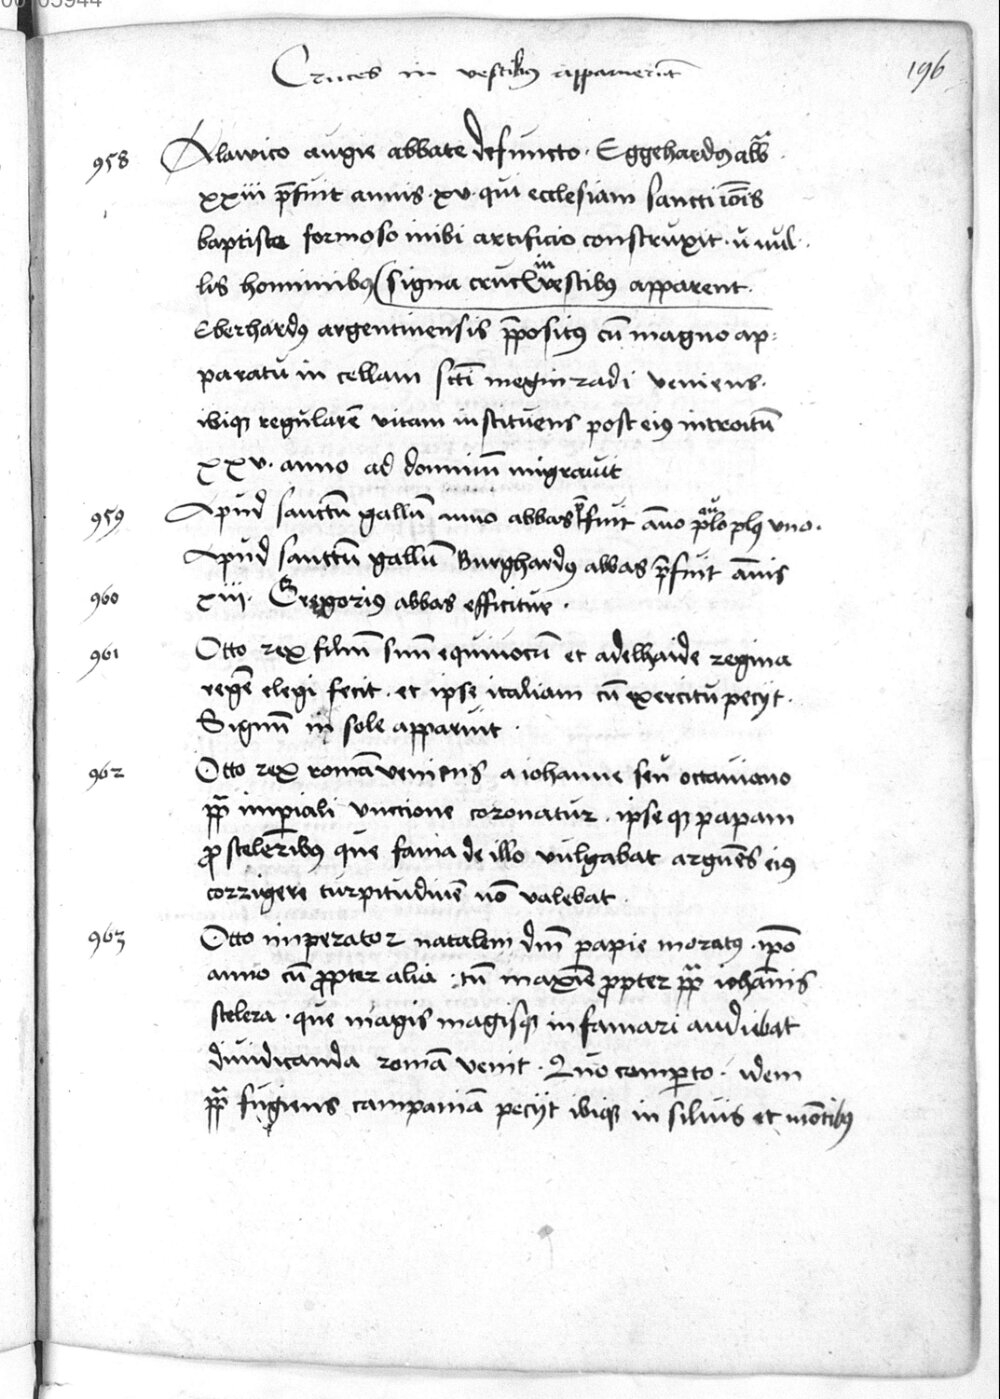 Cruces in vestibus apparuerūt
196
958 Alawico augie abbate defuncto · Eggehardꝯ abb̄
xxiii p̄fuit annis · xv · qui ecclesiam sancti iōis
baptiste formoso inibi artificio construxit ·
lis hominibꝯ signa cruc̄ in vestibꝯ apparent ·
Eberhardꝯ argentinensis p̄positꝯ cū magno ap-
paratu in cellam scti meginradi veniens ·
ibiqꝫ regularē vitam instituens post eiꝯ introitū
xxv · anno ad dominū migravit
959 Apud sanctū gallū anno abbas p̄fuit āno uno ·
Apud sanctū gallū Burghardꝯ abbas p̄fuit ānis
960 xiii · Gregoriꝯ abbas efficitur ·
961 Otto rex filiū suū equivocū et adelhaide regina
regē elegi fecit · et ipse italiam cū exercitu pecijt ·
Signū in sole apparuit ·
962 Otto rex romā veniens a iohanne seu octaviano
pp̄ imp̄iali unccione coronatur · ipse qꝫ papam
ꝓ sceleribꝯ que fama de illo vulgabat arguēs eiꝯ
corrigere turpitudinē nō valebat ·
963 Otto imperator natalem dn̄i papie moratꝯ · ip̄o
anno cū ꝓpter alia · tū maxīe ꝓpter pp̄ iohānis
scelera · que magis magisqꝫ infamari audiebat
diiudicanda romā venit · Quo comperto · idem
pp̄ fugiens campaniā pecijt ibiqꝫ in silvis et mōtibꝯ